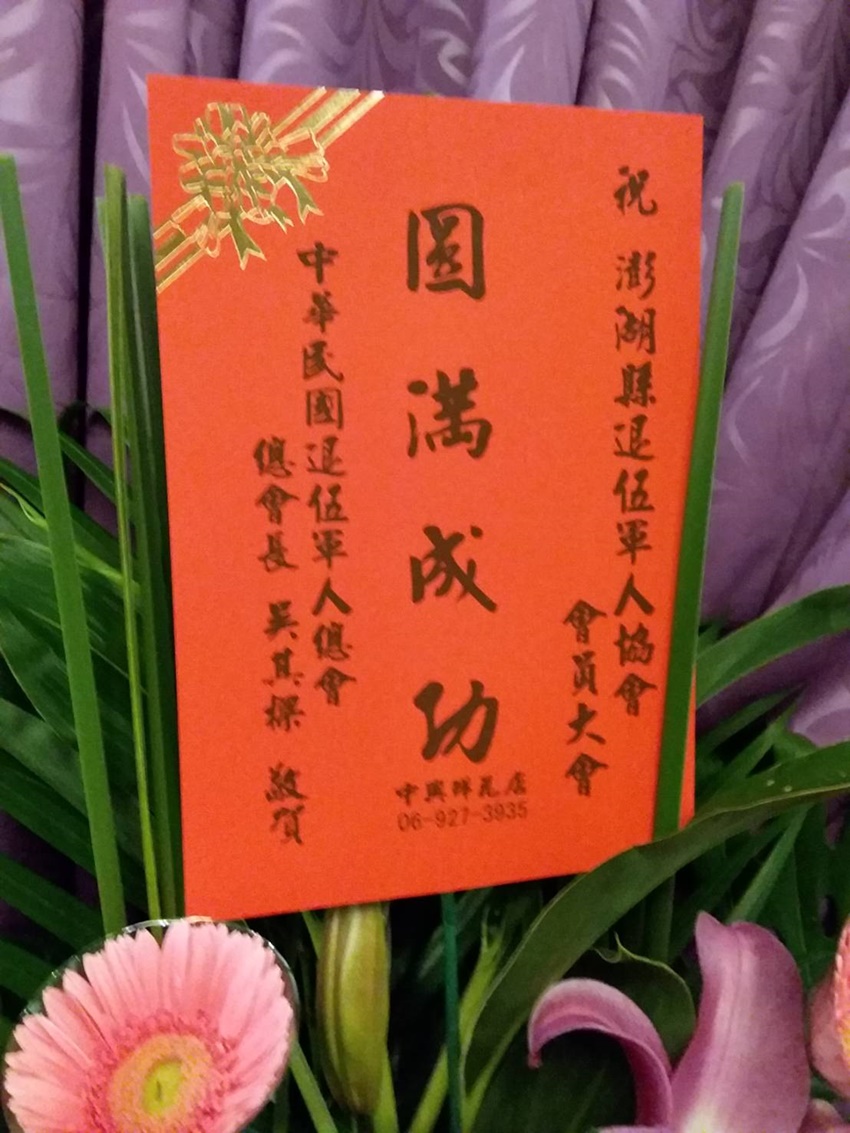 祝 澎湖縣退伍軍人協會
會員大會
圓滿成功
中興鮮花店
06-927-3935
中華民國退伍軍人總會
總會長 吳其樑 敬賀